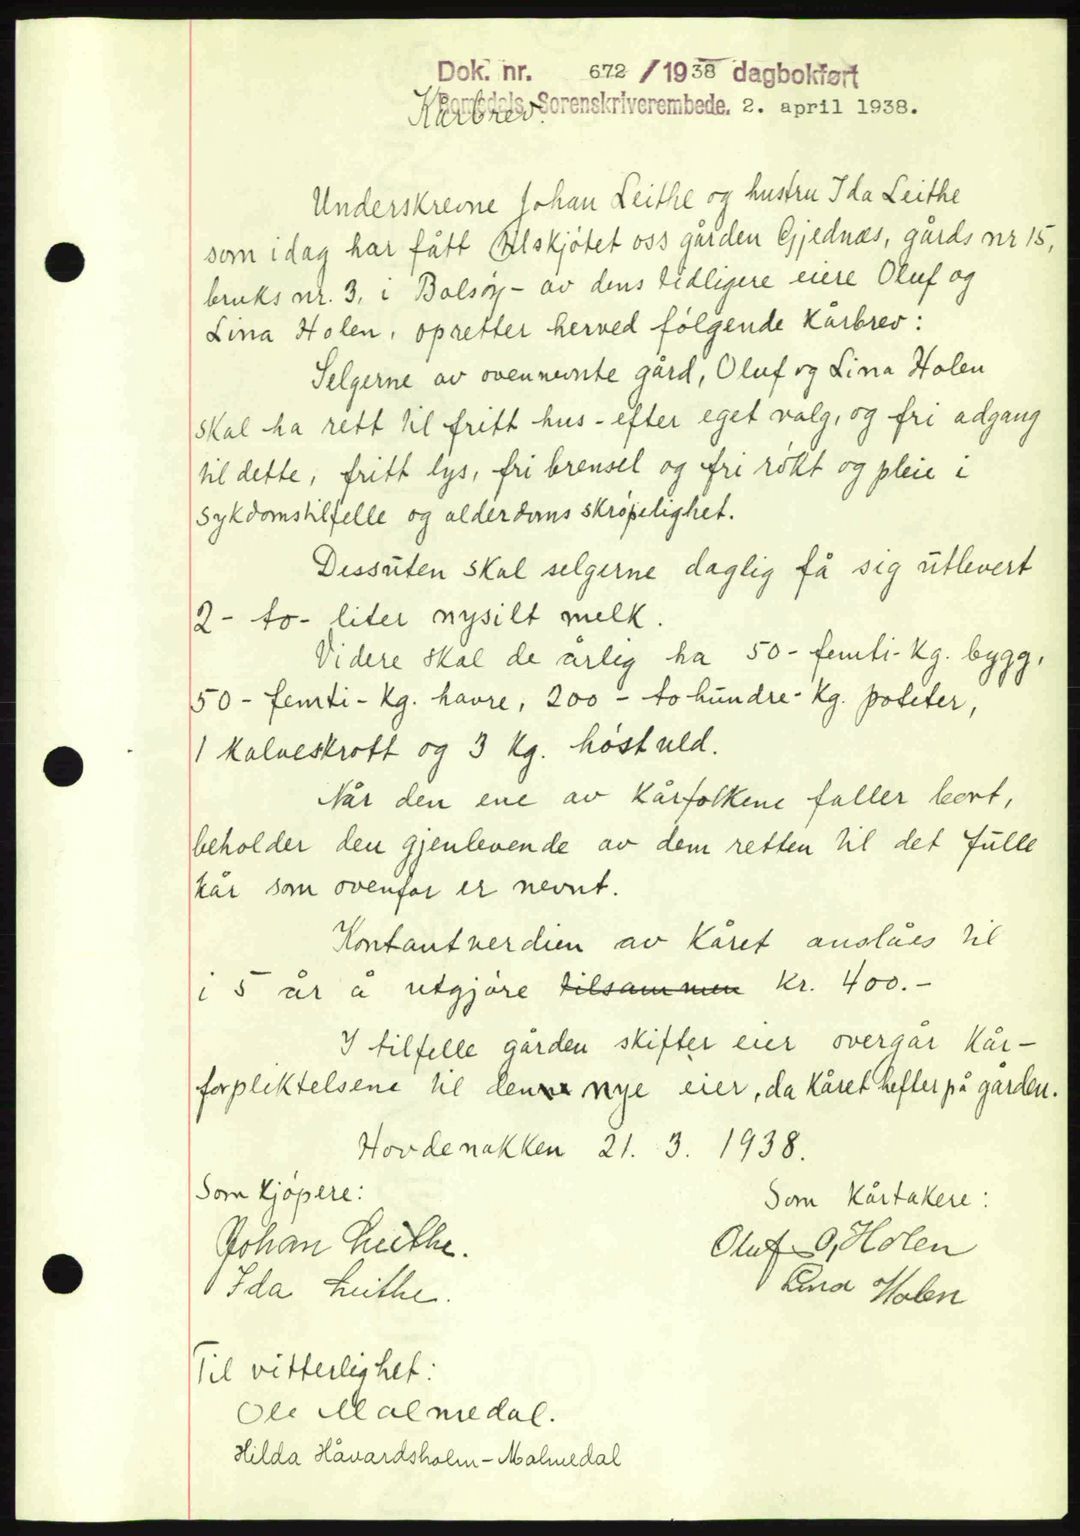 Dok. nr. 672 / 1938 dagbokført
Romsdals Sorenskriverembede. 2. april 1938.
Kårbrev.
Underskrevne Johan Leithe og hustru Ida Leithe
som idag har fått tilskjøtet oss gården Gjednæs, gårds nr 15,
bruks nr. 3, i Bolsøy - av dens tidligere eiere Oluf og
Lina Holen, opretter herved følgende Kårbrev:
Selgerne av ovennevnte gård, Oluf og Lina Holen
skal ha rett til fritt hus - efter eget valg, og fri adgang
til dette, fritt lys, fri brensel og fri røkt og pleie i
sykdomstilfelle og alderdoms skrøpelighet.
Dessuten skal selgerne daglig få sig utlevert
2 - to - liter nysilt melk.
Videre skal de årlig ha 50 - femti - kg. bygg,
50 - femti - kg. havre, 200 - to hundre - kg. poteter,
1 kalveskrott og 3 kg. høstuld.
Når den ene av kårfolkene faller bort,
beholder den gjenlevende av dem retten til det fulle
kår som ovenfor er nevnt.
Kontantverdien av Kåret anslåes til
i 5 år å utgjøre tilsammen kr. 400.-
I tilfelle gården skifter eier overgår Kår-
forpliktelsene til den nye eier, da Kåret hefter på gården.
Hovdenakken 21. 3. 1938.
Som kjøpere:
Som Kårtakere:
Johan Leithe.
Oluf O, Holen
Ida Leithe.
Lina Holen
Til vitterlighet:
Ole Malmedal.
Hilda Håvardsholm - Malmedal